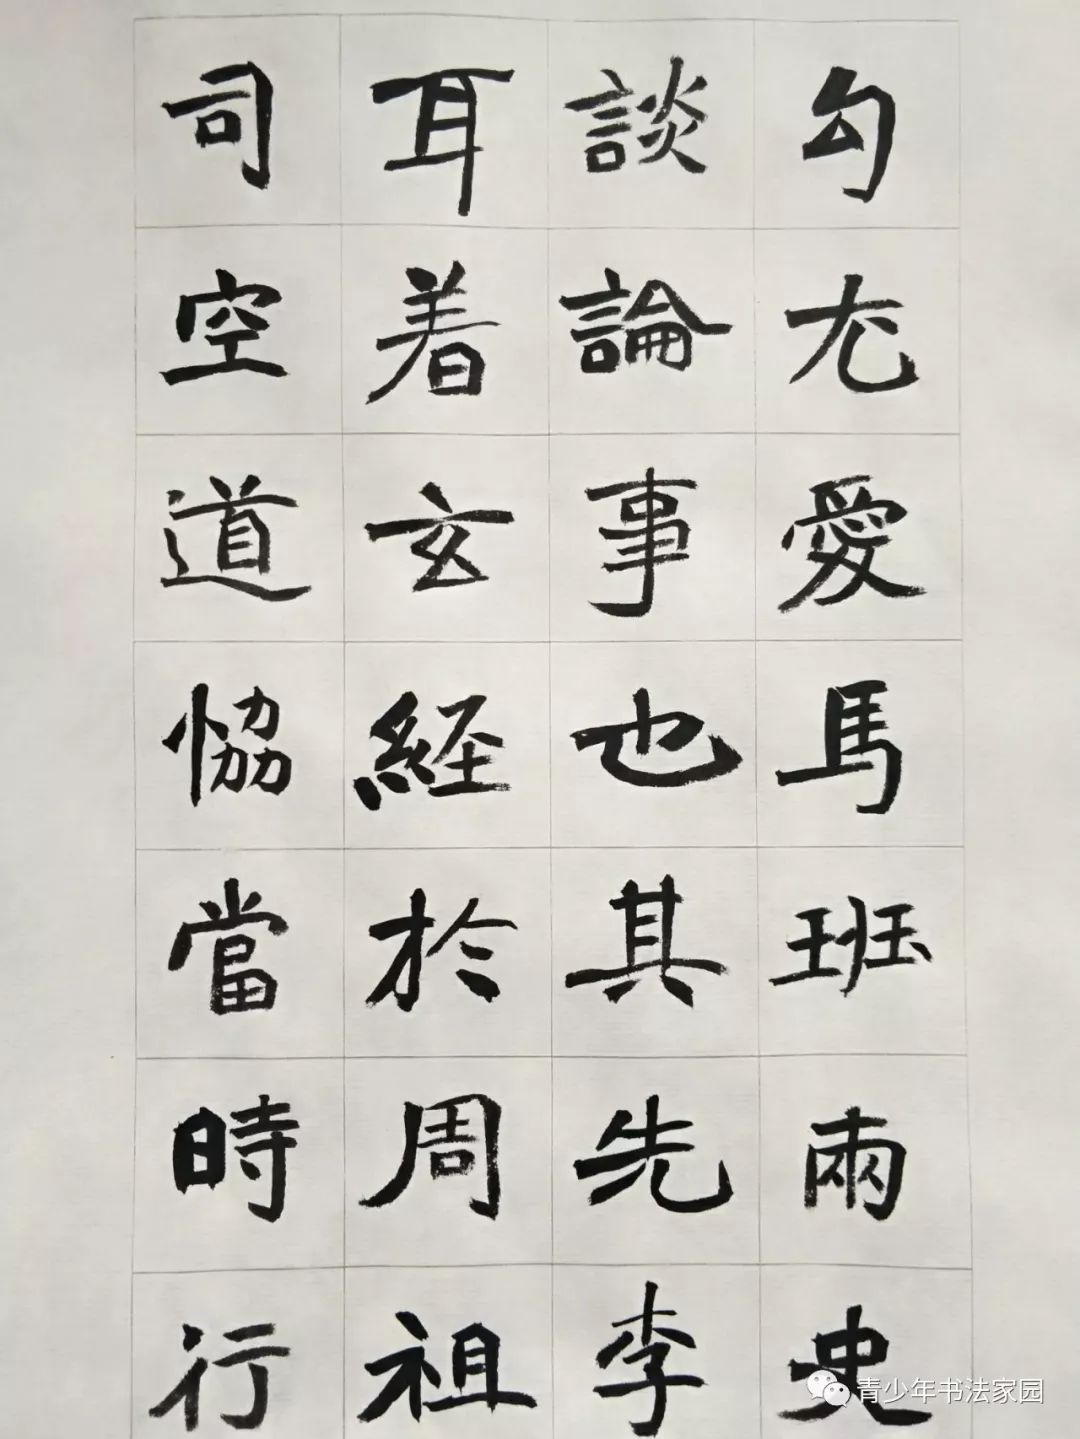 勾尢愛馬班兩史
談論事也其先李
耳着玄経於周祖
司空道恊當時行
青少年书法家园